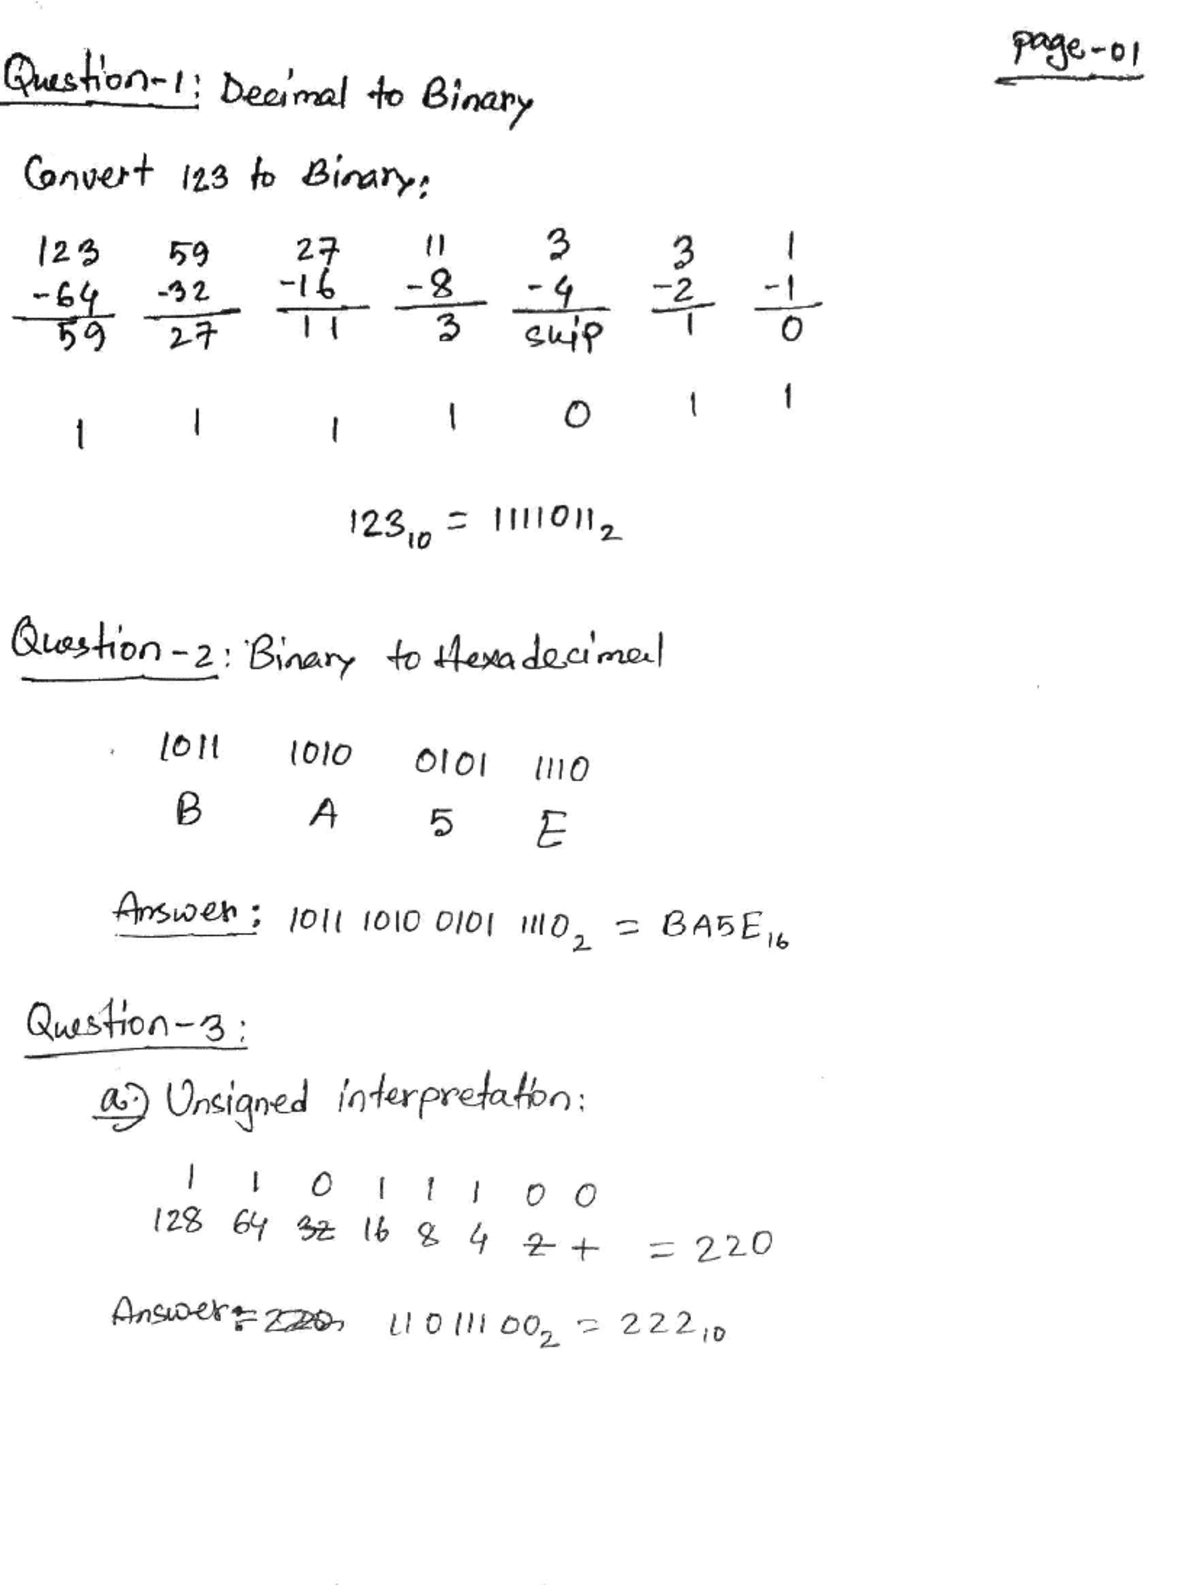 page-01
Question-1: Decimal to Binary
Convert 123 to Binary:
123 59 27 11 3 3 1
-64 -32 -16 -8 -4 -2 -1
59 27 11 3 skip 1 0
1 1 1 1 0 1 1
123₁₀ = 1111011₂
Question-2: Binary to Hexadecimal
1011 1010 0101 1110
B A 5 E
Answer: 1011 1010 0101 1110₂ = BA5E₁₆
Question-3:
a.) Unsigned interpretation:
1 1 0 1 1 1 0 0
128 64 32 16 8 4 2 1 = 220
Answer: = 220, 11011100₂ = 222₁₀